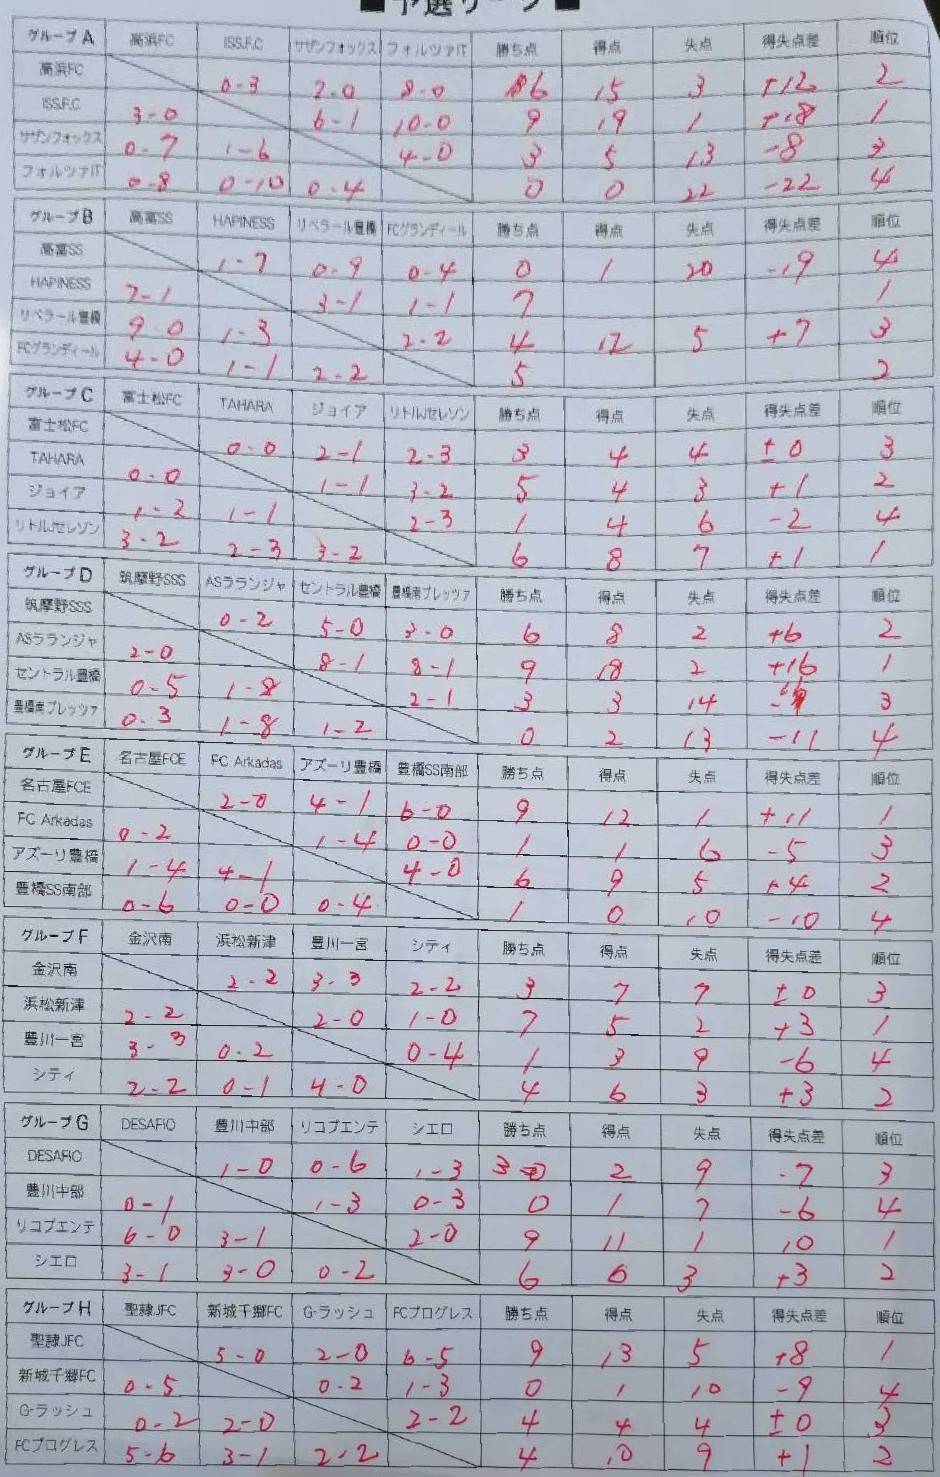 ■予選リーグ■
グループA 高浜FC ISS.F.C サザンフォックス フォルツァIT 勝ち点 得点 失点 得失点差 順位
高浜FC 0-3 2-0 8-0 6 15 3 +12 2
ISS.F.C 3-0 6-1 10-0 9 19 1 +18 1
サザンフォックス 0-7 1-6 4-0 3 5 13 -8 3
フォルツァIT 0-8 0-10 0-4 0 0 22 -22 4
グループB 高富SS HAPINESS リベラール豊橋 FCグランディール 勝ち点 得点 失点 得失点差 順位
高富SS 1-7 0-9 0-4 0 1 20 -19 4
HAPINESS 7-1 3-1 1-1 7 1
リベラール豊橋 9-0 1-3 2-2 4 12 5 +7 3
FCグランディール 4-0 1-1 2-2 5 2
グループC 富士松FC TAHARA ジョイア リトルJセレソン 勝ち点 得点 失点 得失点差 順位
富士松FC 0-0 2-1 2-3 3 4 4 ±0 3
TAHARA 0-0 1-1 3-2 5 4 3 +1 2
ジョイア 1-2 1-1 2-3 1 4 6 -2 4
リトルJセレソン 3-2 2-3 3-2 6 8 7 +1 1
グループD 筑摩野SSS ASラランジャ セントラル豊橋 豊橋南プレッツァ 勝ち点 得点 失点 得失点差 順位
筑摩野SSS 0-2 5-0 3-0 6 8 2 +6 2
ASラランジャ 2-0 8-1 8-1 9 18 2 +16 1
セントラル豊橋 0-5 1-8 2-1 3 3 14 3
豊橋南プレッツァ 0-3 1-8 1-2 0 2 13 -11 4
グループE 名古屋FCE FC Arkadas アズーリ豊橋 豊橋SS南部 勝ち点 得点 失点 得失点差 順位
名古屋FCE 2-0 4-1 6-0 9 12 1 +11 1
FC Arkadas 0-2 1-4 0-0 1 1 6 -5 3
アズーリ豊橋 1-4 4-1 4-0 6 9 5 +4 2
豊橋SS南部 0-6 0-0 0-4 1 0 10 -10 4
グループF 金沢南 浜松新津 豊川一宮 シティ 勝ち点 得点 失点 得失点差 順位
金沢南 2-2 3-3 2-2 3 7 7 ±0 3
浜松新津 2-2 2-0 1-0 7 5 2 +3 1
豊川一宮 3-3 0-2 0-4 1 3 9 -6 4
シティ 2-2 0-1 4-0 4 6 3 +3 2
グループG DESAFIO 豊川中部 リコプエンテ シエロ 勝ち点 得点 失点 得失点差 順位
DESAFIO 1-0 0-6 1-3 3 2 9 -7 3
豊川中部 0-1 1-3 0-3 0 1 7 -6 4
リコプエンテ 6-0 3-1 2-0 9 11 1 10 1
シエロ 3-1 3-0 0-2 6 6 3 +3 2
グループH 聖隷JFC 新城千郷FC G-ラッシュ FCプログレス 勝ち点 得点 失点 得失点差 順位
聖隷JFC 5-0 2-0 6-5 9 13 5 +8 1
新城千郷FC 0-5 0-2 1-3 0 1 10 -9 4
G-ラッシュ 0-2 2-0 2-2 4 4 4 ±0 3
FCプログレス 5-6 3-1 2-2 4 10 9 +1 2